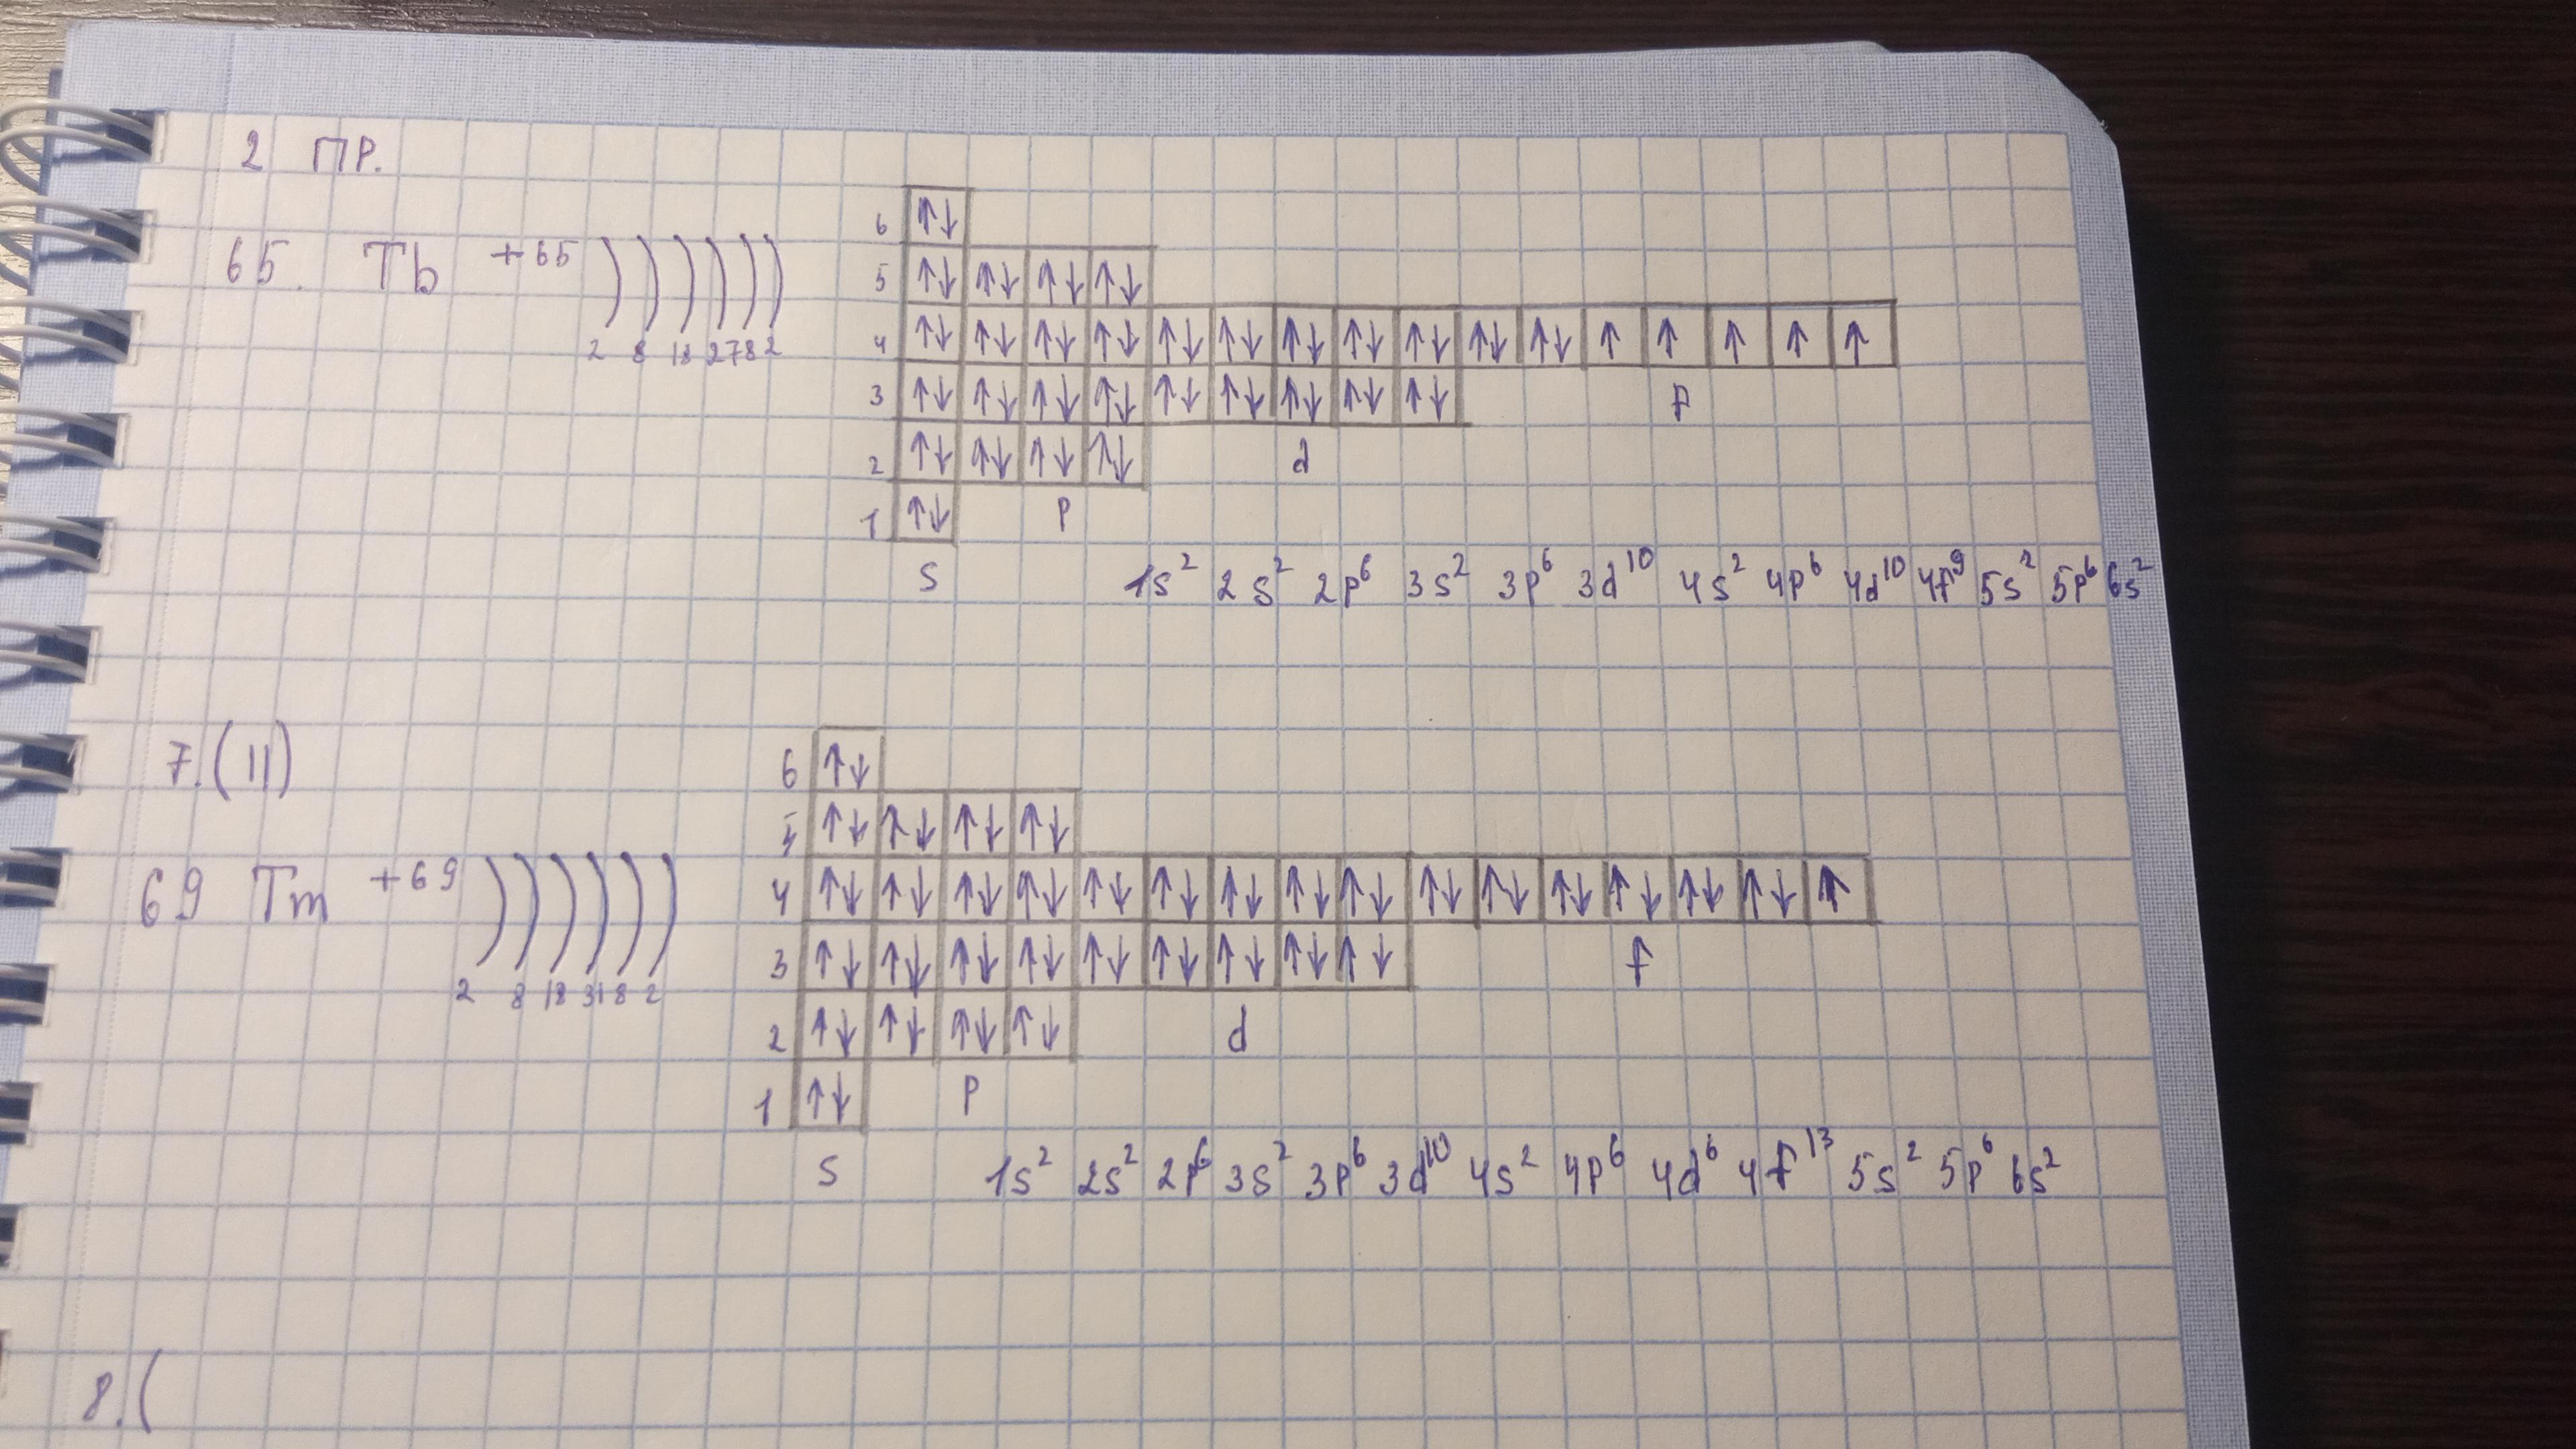 2 ПР.
65. Tb +65 ) ) ) ) ) )
2 8 18 27 8 2
6 ↑↓
5 ↑↓ ↑↓ ↑↓ ↑↓
4 ↑↓ ↑↓ ↑↓ ↑↓ ↑↓ ↑↓ ↑↓ ↑↓ ↑↓ ↑↓ ↑↓ ↑ ↑ ↑ ↑ ↑
3 ↑↓ ↑↓ ↑↓ ↑↓ ↑↓ ↑↓ ↑↓ ↑↓ ↑↓ f
2 ↑↓ ↑↓ ↑↓ ↑↓ d
1 ↑↓ p
s 1s² 2s² 2p⁶ 3s² 3p⁶ 3d¹⁰ 4s² 4p⁶ 4d¹⁰ 4f⁹ 5s² 5p⁶ 6s²
7.(11)
69 Tm +69 ) ) ) ) ) )
2 8 18 31 8 2
6 ↑↓
5 ↑↓ ↑↓ ↑↓ ↑↓
4 ↑↓ ↑↓ ↑↓ ↑↓ ↑↓ ↑↓ ↑↓ ↑↓ ↑↓ ↑↓ ↑↓ ↑↓ ↑↓ ↑↓ ↑↓ ↑
3 ↑↓ ↑↓ ↑↓ ↑↓ ↑↓ ↑↓ ↑↓ ↑↓ ↑↓ f
2 ↑↓ ↑↓ ↑↓ ↑↓ d
1 ↑↓ p
s 1s² 2s² 2p⁶ 3s² 3p⁶ 3d¹⁰ 4s² 4p⁶ 4d⁶ 4f¹³ 5s² 5p⁶ 6s²
8.(